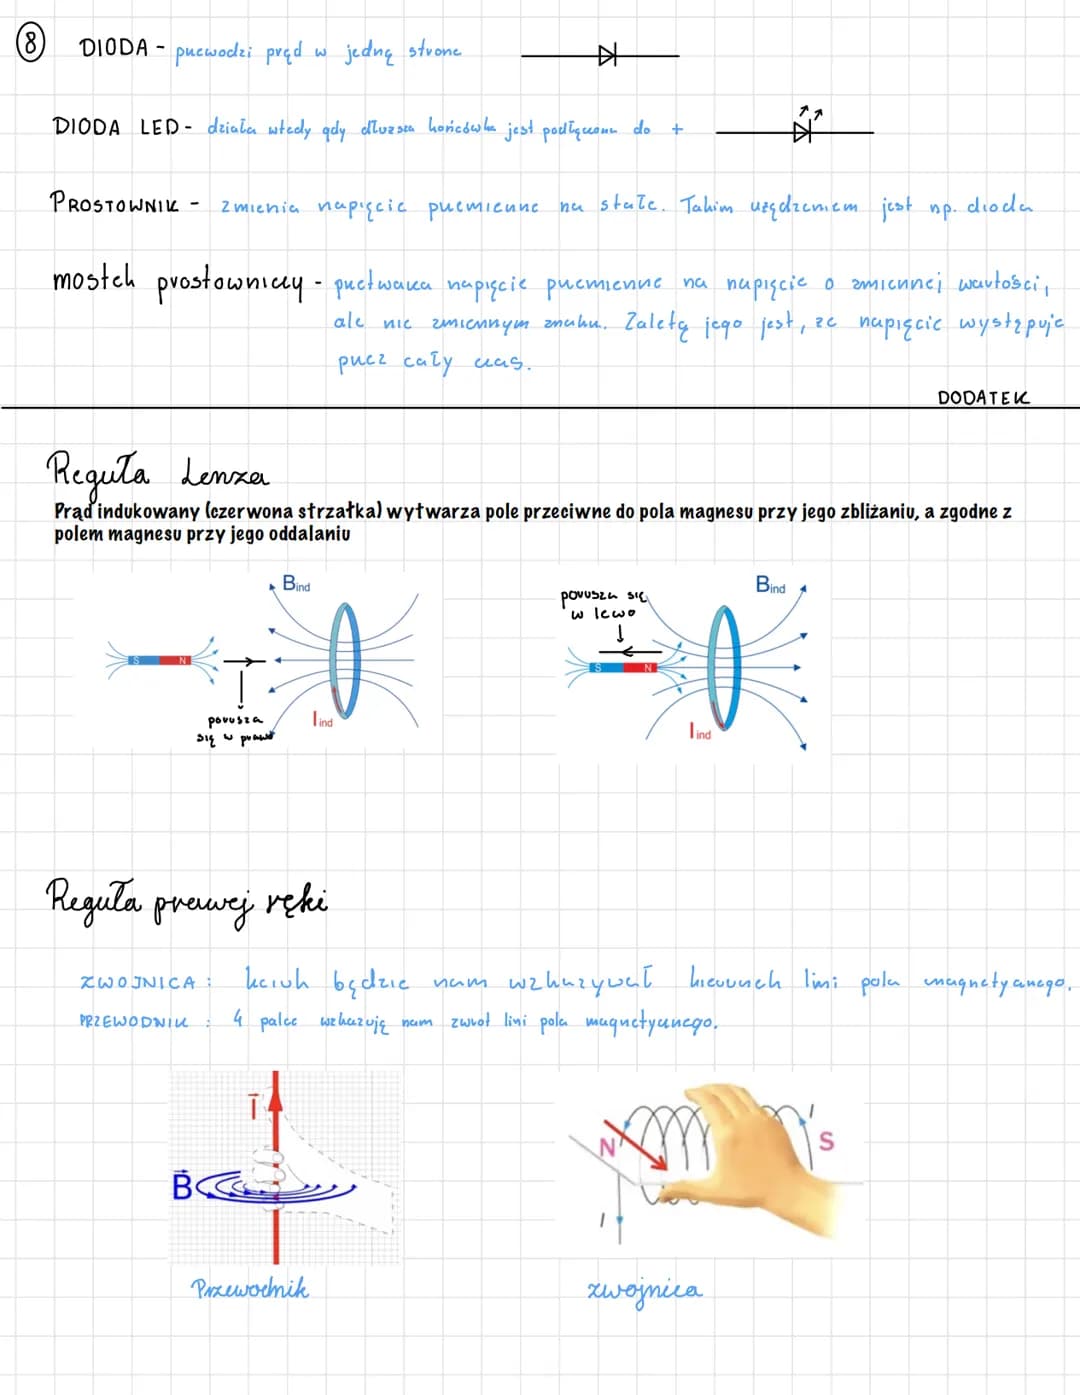 8 DIODA - przewodzi prąd w jedną stronę
DIODA LED - działa wtedy gdy dłuższa końcówka jest podłączona do +
PROSTOWNIK - zmienia napięcie przemienne na stałe. Takim urządzeniem jest np. dioda
mostek prostowniczy - przetwarza napięcie przemienne na napięcie o zmiennej wartości,
ale nie zmiennym znaku. Zaletą jego jest, że napięcie występuje
przez cały czas.
DODATEK
Reguła Lenza
Prąd indukowany (czerwona strzałka) wytwarza pole przeciwne do pola magnesu przy jego zbliżaniu, a zgodne z
polem magnesu przy jego oddalaniu
Bind
S N
porusza
się w prawo
Iind
porusza się
w lewo
Bind
S N
Iind
Reguła prawej ręki
ZWOJNICA : kciuk będzie nam wzkazywał kierunek lini pola magnetycznego.
PRZEWODNIK : 4 palce wzkazują nam zwrot lini pola magnetycznego.
I
B
N
I
S
I
Przewodnik
zwojnica